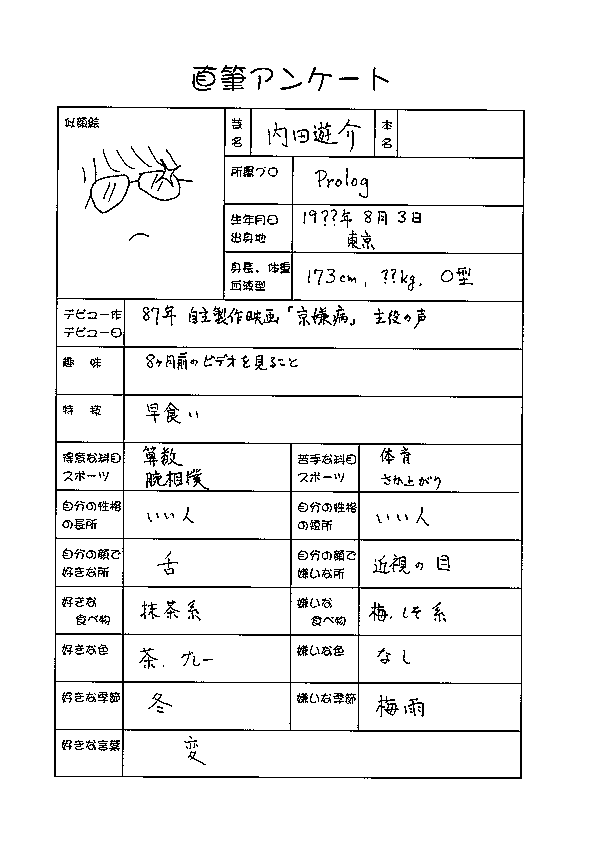 直筆アンケート
似顔絵
芸名
内田遊介
本名
所属プロ
Prolog
生年月日
出身地
19??年 8月 3日
東京
身長、体重
血液型
173cm, ??kg, O型
デビュー作
デビュー日
87年 自主製作映画「京嫌病」 主役の声
趣 味
8ヶ月前のビデオを見ること
特 技
早食い
得意な科目
スポーツ
算数
腕相撲
苦手な科目
スポーツ
体育
さか上がり
自分の性格
の長所
いい人
自分の性格
の短所
いい人
自分の顔で
好きな所
舌
自分の顔で
嫌いな所
近視の目
好きな
食べ物
抹茶系
嫌いな
食べ物
梅、しそ系
好きな色
茶、グレー
嫌いな色
なし
好きな季節
冬
嫌いな季節
梅雨
好きな言葉
変